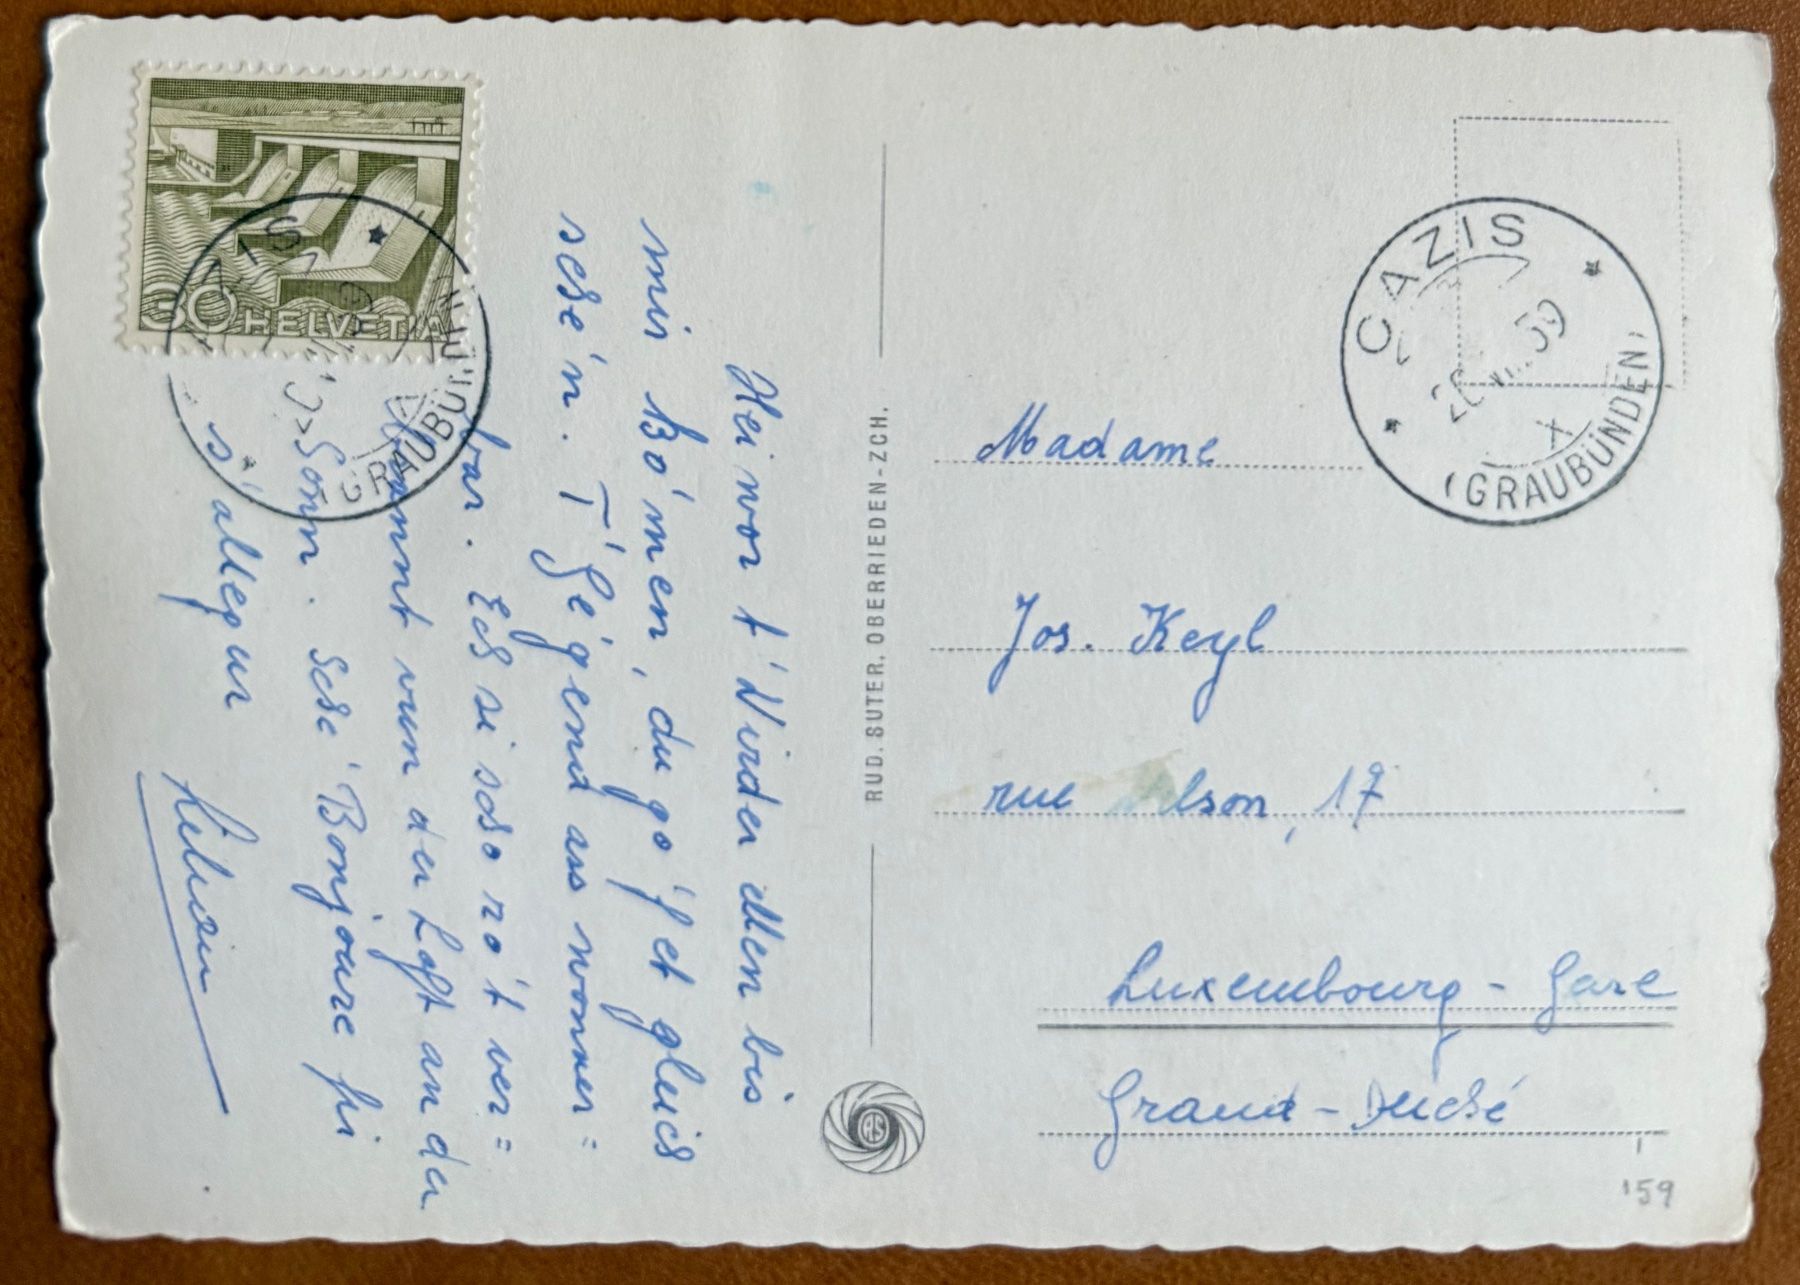 30 HELVETIA
CAZIS
(GRAUBÜNDEN)
Hei wor t'Wieder ellen bis
mir kó'men, du gó'f et gleich
sché'n. T'Gé'gend as wonner=
bar. Ech si scho ró't ver=
brannt vun der Loft an der
Sonn. Sché' Bonjoure fir
s' alleguer
RUD. SUTER, OBERRIEDEN-ZCH.
RS
CAZIS
59
X
(GRAUBÜNDEN)
Madame
Jos. Keyl
rue Wilson, 17
Luxembourg - Gare
Grand-Duché
159